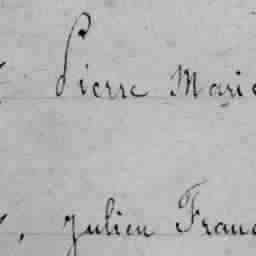 Pierre Marie
, Julien Franç